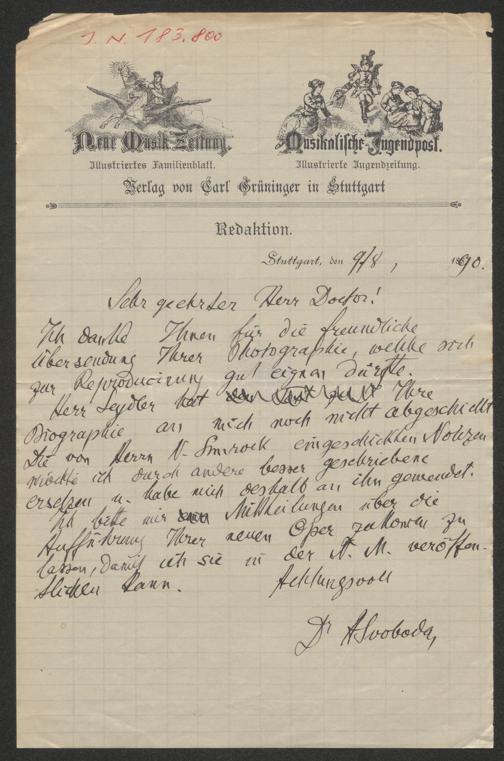 J. N. 183.800
Neue Musik-Zeitung.
Illustriertes Familienblatt.
Musikalische Jugendpost.
Illustrierte Jugendzeitung.
Verlag von Carl Grüninger in Stuttgart
Redaktion.
Stuttgart, den 9/8, 1890.
Sehr geehrter Herr Doctor!
Ich danke Ihnen für die freundliche
Übersendung Ihrer Photographie, welche sich
zur Reproducirung gut eignen dürfte.
Herr Seydler hat Ihre
Biographie an mich noch nicht abgeschickt
Die von Herrn N. Simrock eingeschickten Notizen
möchte ich durch andere besser geschriebene
ersetzen u. habe mich deshalb an ihn gewendet.
Ich bitte mir Mittheilungen über die
Aufführung Ihrer neuen Oper zukommen zu
lassen, damit ich sie in der N. M. veröffen-
tlichen kann.
Achtungsvoll
Dr ASvoboda,